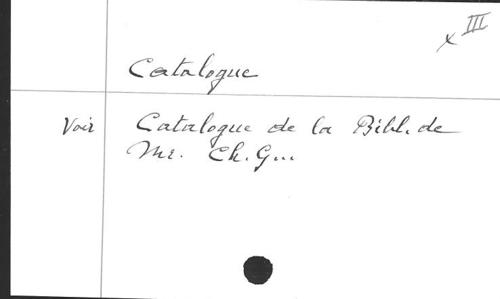 x III
Catalogue
Voir Catalogue de la Bibl. de
Mr. Ch. G...